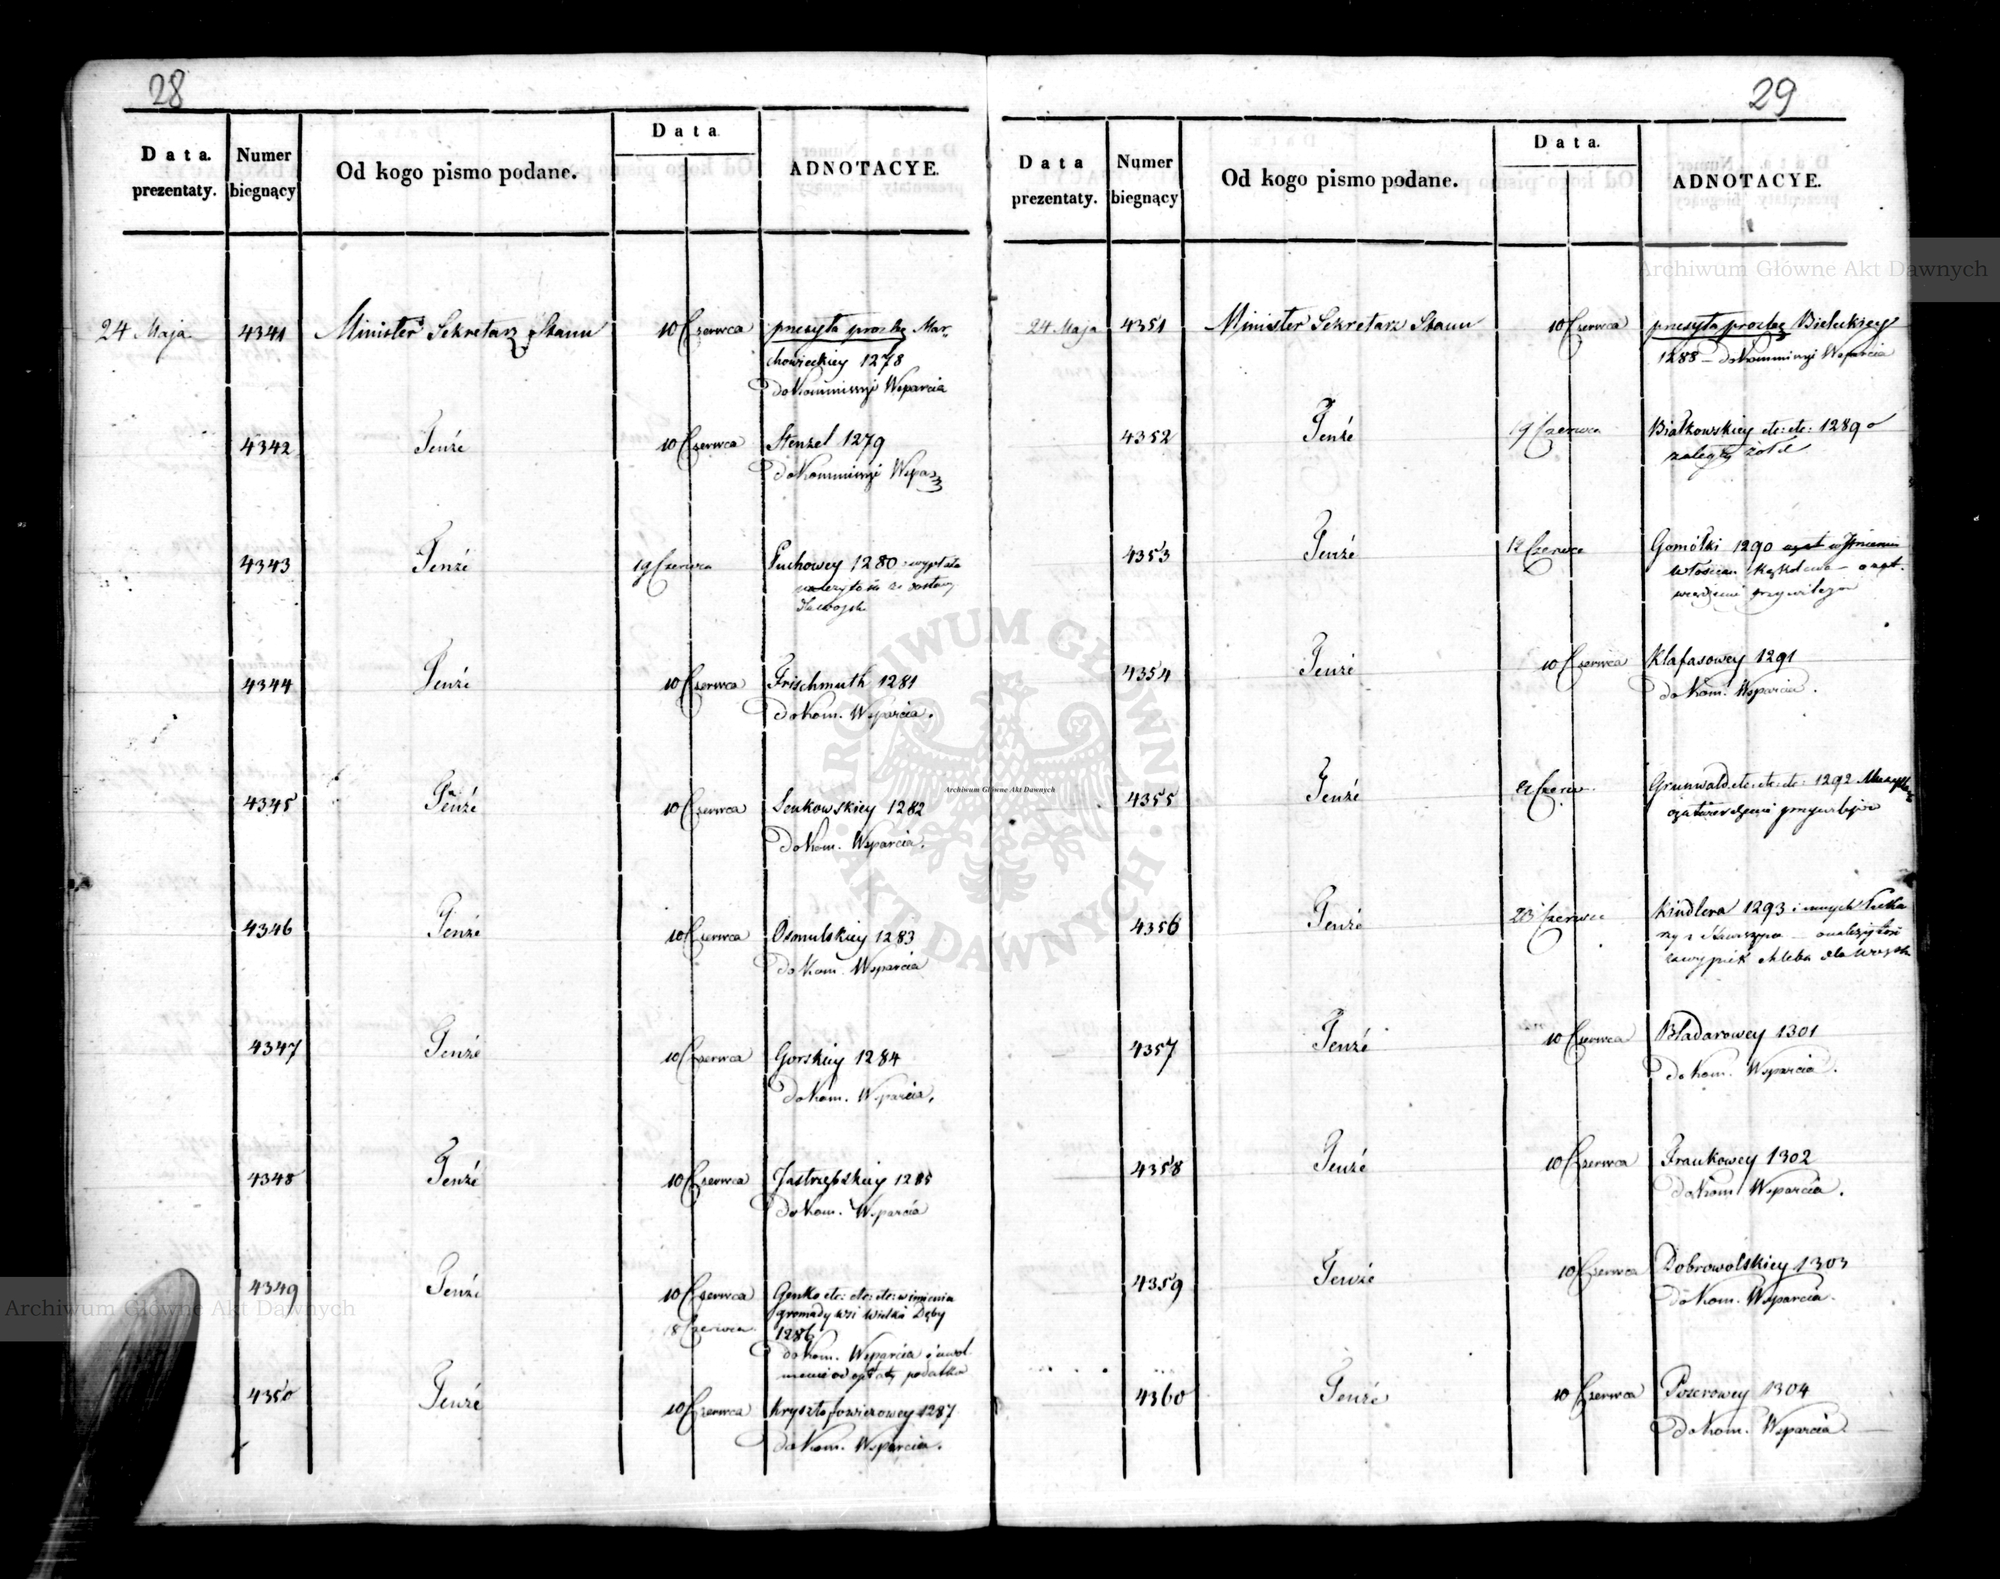 28
Data prezentaty.
Numer biegnący
Od kogo pismo podane.
Data
ADNOTACYE.
24 Maja
4341
Minister Sekretarz Stanu
10 Czerwca
przesyła prozbę Mar-
chowieckiey 1278
do Kommissyi Wsparcia
4342
Tenże
10 Czerwca
Stenzel 1279
do Kommissyi
4343
Tenże
19 Czerwca
Puchowey 1280 wypłata
4344
Tenże
10 Czerwca
Frischmuth 1281
do Kom. Wsparcia.
4345
Tenże
10 Czerwca
Senkowskiey 1282
do Kom. Wsparcia.
4346
Tenże
10 Czerwca
Osmulskiey 1283
do Kom. Wsparcia
4347
Tenże
10 Czerwca
Gorskiey 1284
do Kom. Wsparcia.
4348
Tenże
10 Czerwca
Jastrzębskiey 1285
do Kom. Wsparcia
4349
Tenże
10 Czerwca
18 Czerwca
Genko etc: etc: etc: w imieniu
gromady wsi Wielka Dęby
1286
do Kom. Wsparcia
od opłaty podatku
4350
Tenże
10 Czerwca
Krysztofowiczowey 1287
do Kom. Wsparcia.
29
Data prezentaty.
Numer biegnący
Od kogo pismo podane.
Data.
ADNOTACYE.
24 Maja
4351
Minister Sekretarz Stanu
10 Czerwca
przesyła prozbę Bieleckiey
1288 – do Kommissyi Wsparcia
4352
Tenże
19 Czerwca
Białkowskiey etc: etc: 1289 o
zaległy żołd
4353
Tenże
12 Czerwca
Gomółki 1290
włościan
przywileju
4354
Tenże
10 Czerwca
Klafasowey 1291
do Kom. Wsparcia.
4355
Tenże
Grunwald etc: etc: etc: 1292
przywileju
4356
Tenże
23 Czerwca
Kindlera 1293 i innych
chleba dla
4357
Tenże
10 Czerwca
Bladarowey 1301
do Kom. Wsparcia.
4358
Tenże
10 Czerwca
Frankowey 1302
do Kom. Wsparcia.
4359
Tenże
10 Czerwca
Dobrowolskiey 1303
do Kom. Wsparcia.
4360
Tenże
10 Czerwca
Pozerowey 1304
do Kom. Wsparcia.
Archiwum Główne Akt Dawnych
ARCHIWUM GŁÓWNE AKT DAWNYCH
Archiwum Główne Akt Dawnych
Archiwum Główne Akt Dawnych